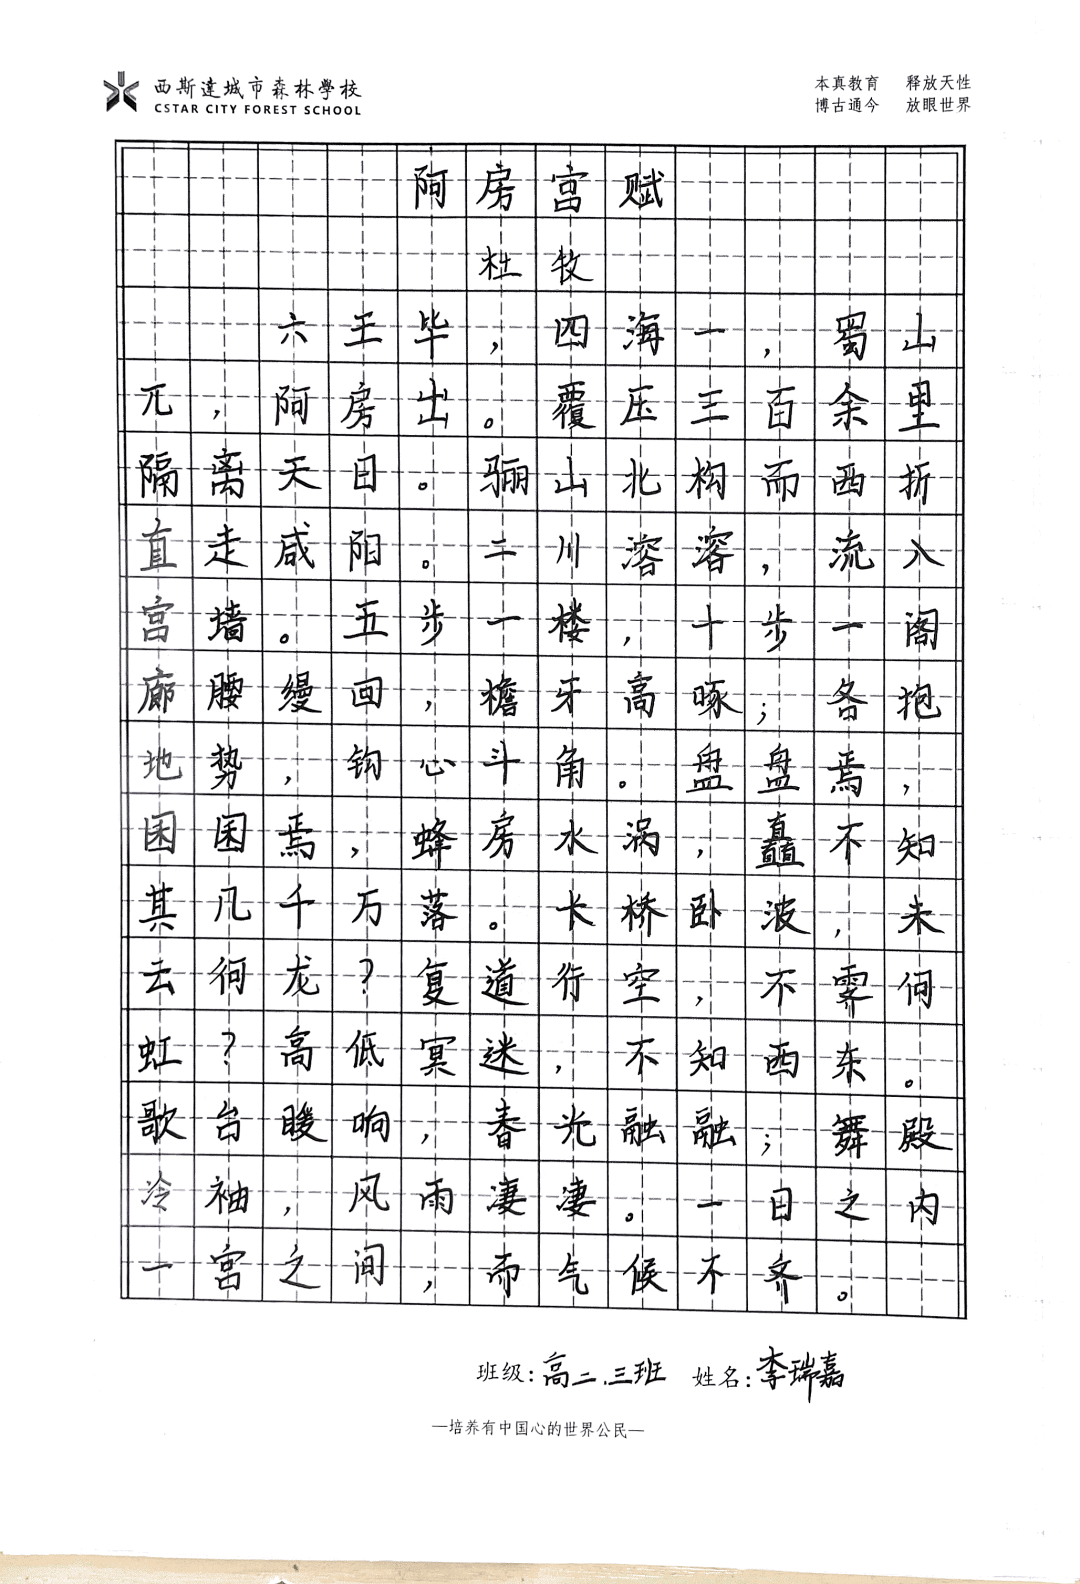 西斯達城市森林學校
CSTAR CITY FOREST SCHOOL
本真教育 释放天性
博古通今 放眼世界
阿房宫赋
杜牧
六王毕，四海一，蜀山
兀，阿房出。覆压三百余里
隔离天日。骊山北构而西折
直走咸阳。二川溶溶，流入
宫墙。五步一楼，十步一阁
廊腰缦回，檐牙高啄；各抱
地势，钩心斗角。盘盘焉，
囷囷焉，蜂房水涡，矗不知
其几千万落。长桥卧波，未
云何龙？复道行空，不霁何
虹？高低冥迷，不知西东。
歌台暖响，春光融融；舞殿
冷袖，风雨凄凄。一日之内
一宫之间，而气候不齐。
班级：高二.三班 姓名：李瑞嘉
—培养有中国心的世界公民—